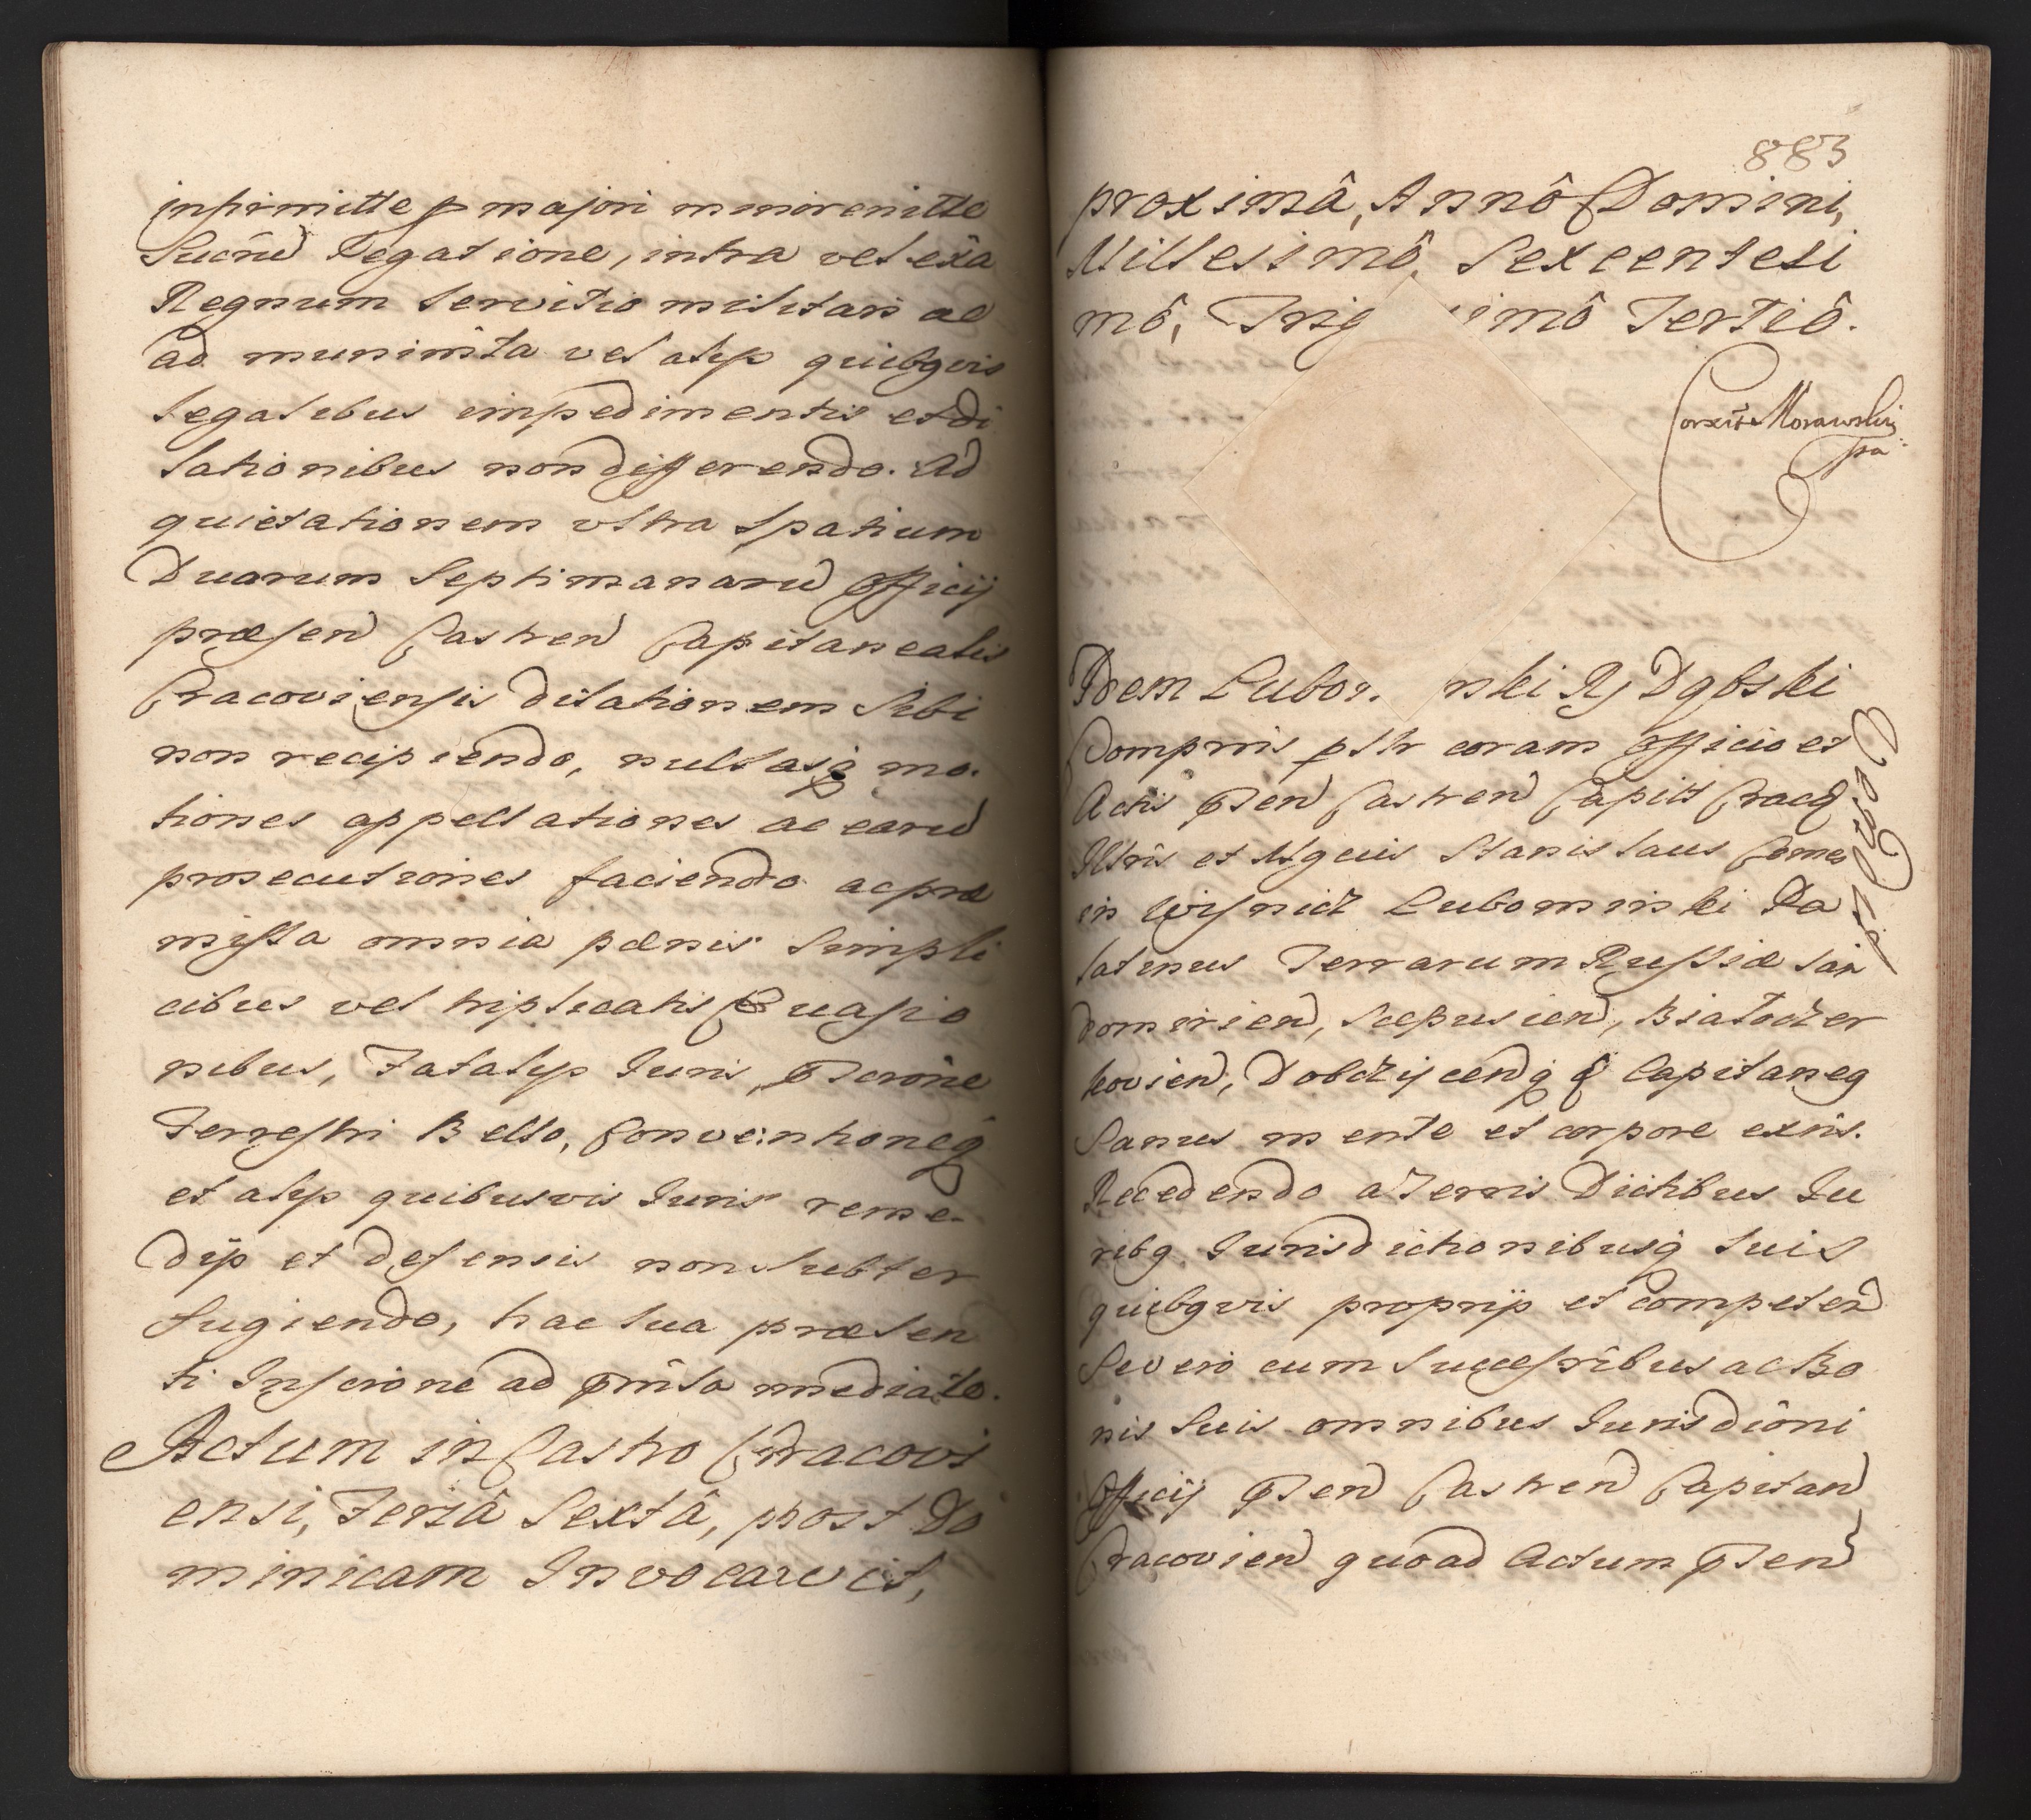 infirmitte p majori minorenitte
Sucrud Legatione, intra vel exa
Regnum servitio militari ac
ad munimta vel alijs quibqvis
legalibus impedimentis et di
lationibus non differendo. Ad
quietationem ultra spatium
Duarum Septimanarũ Officij
præsen Castren Capitanealis
Cracoviensis dilationem Sibi
non recipiendo, nullasq mo.
tiones appellationes ac earũ
prosecutiones faciendo ac præ
missa omnia pænis simpli
cibus vel triplicatis Evasio
nibus, Fatalijs Juris,
Terrestri Bello, Conventioneq
et alijs quibusvis Juris reme-
dijs et defensis non subter
fugiendo, hac sua præsen
ti Inscrione ad prmssa mediate.
Actum in Castro Cracovi
ensi, Feriâ Sextâ, post Do
minicam Invocavit,
883
proximâ, Annô Domini,
Millesimô, Sexcentesi
mô, Trig imô Tertiô.
Morawski
Idem Lubo nski Rj Dębski
Comprns psltr coram Officio et
Actis psen Castren Capitt Cracq
Illris et Mgcus Stanislaus Comes
in Wisnicz Lubomirski Pa
latinus Terrarum Russiæ San
domirien, Scepusien, Bialocer
kovien, Dobczycenq & Capitaneq
Sanus mente et corpore exns.
Recedendo a Terris Dictibus Ju
ribq Jurisdictionibusq suis
quibqvis proprijs et competen
Se vero cum Succesribus ac Bo
nis suis omnibus Jurisdioni
Officij psen Castren Capitan
Cracovien quoad Actum psen